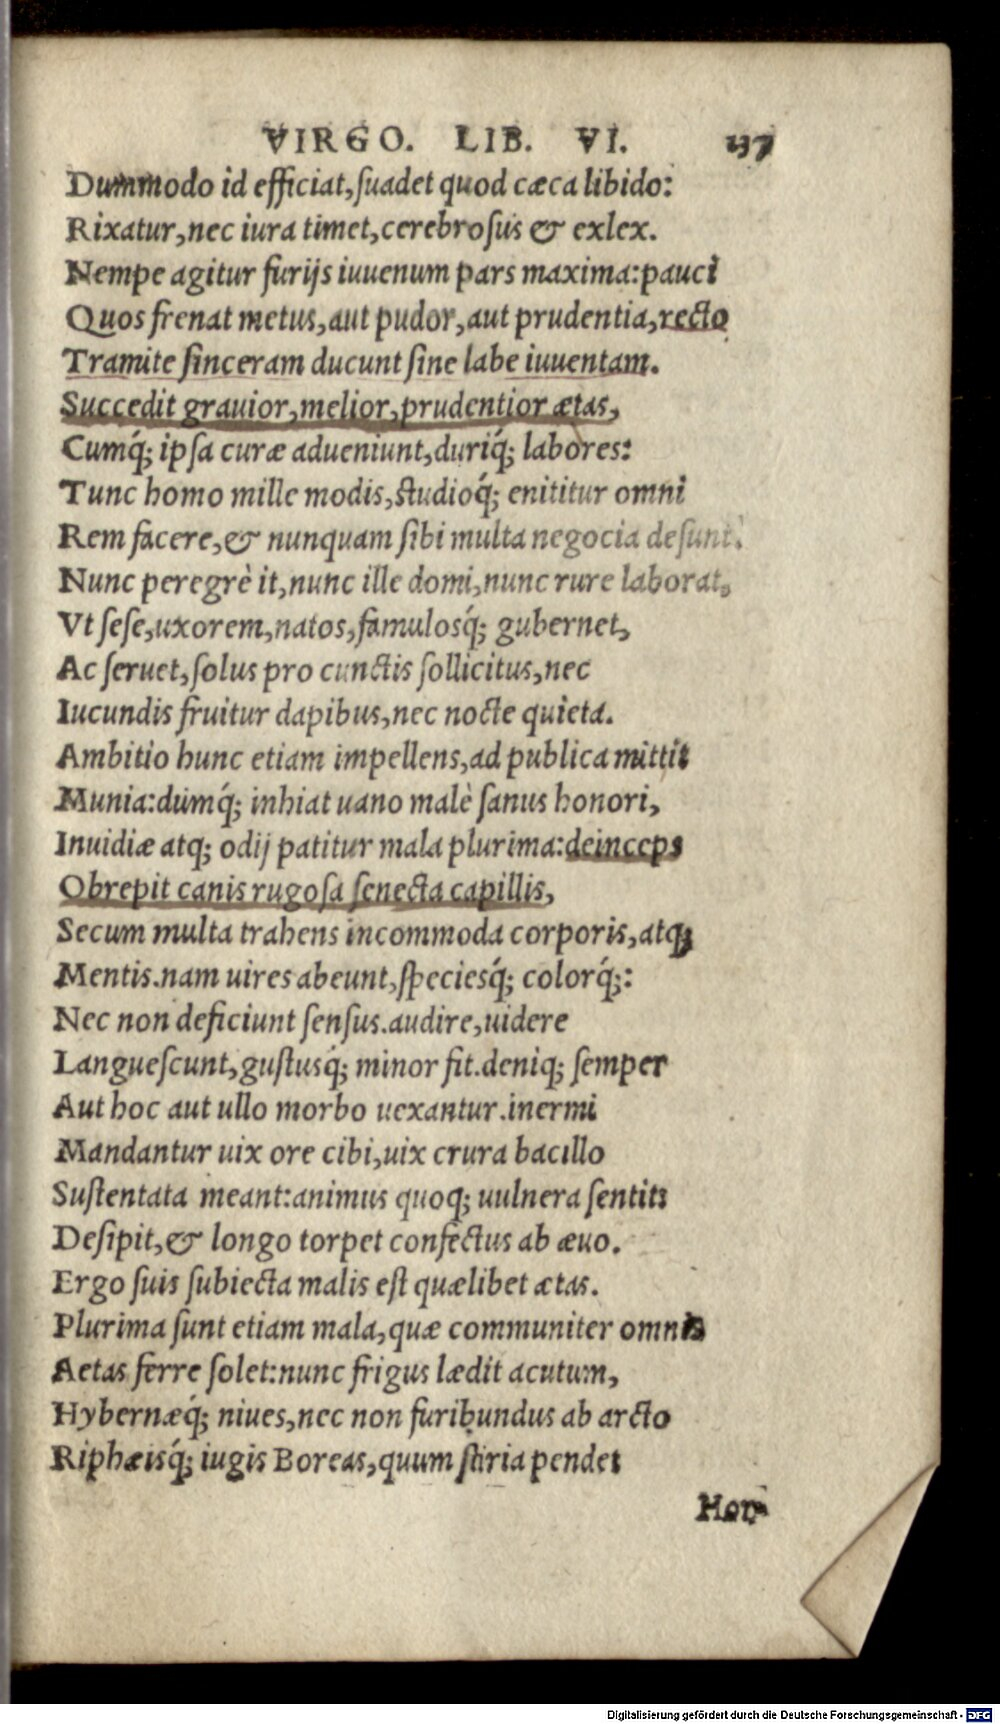 VIRGO. LIB. VI. 137
Dummodo id efficiat,ſuadet quod cæca libido:
Rixatur,nec iura timet,cerebroſus & exlex.
Nempe agitur furijs iuuenum pars maxima:pauci
Quos frenat metus,aut pudor,aut prudentia,recto
Tramite ſinceram ducunt ſine labe iuuentam.
Succedit grauior,melior,prudentior ætas,
Cumq́; ipſa curæ adueniunt,duriq́; labores:
Tunc homo mille modis,ſtudioq́; enititur omni
Rem facere,& nunquam ſibi multa negocia deſunt.
Nunc peregrè it,nunc ille domi,nunc rure laborat,
Vt ſeſe,uxorem,natos,famulosq́; gubernet,
Ac ſeruet,ſolus pro cunctis ſollicitus,nec
Iucundis fruitur dapibus,nec nocte quieta.
Ambitio hunc etiam impellens,ad publica mittit
Munia:dumq́; inhiat uano malè ſanus honori,
Inuidiæ atq; odij patitur mala plurima:deinceps
Obrepit canis rugoſa ſenecta capillis,
Secum multa trahens incommoda corporis,atq;
Mentis.nam uires abeunt,ſpeciesq́; colorq́;:
Nec non deficiunt ſenſus.audire,uidere
Langueſcunt,guſtusq́; minor fit.deniq; ſemper
Aut hoc aut ullo morbo uexantur.inermi
Mandantur uix ore cibi,uix crura bacillo
Suſtentata meant:animus quoq; uulnera ſentit:
Deſipit,& longo torpet confectus ab æuo.
Ergo ſuis ſubiecta malis eſt quælibet ætas.
Plurima ſunt etiam mala,quæ communiter omnis
Aetas ferre ſolet:nunc frigus lædit acutum,
Hybernæq́; niues,nec non furibundus ab arcto
Riphæisq́; iugis Boreas,quum ſtiria pendet
Hor
Digitalisierung gefördert durch die Deutsche Forschungsgemeinschaft - DFG